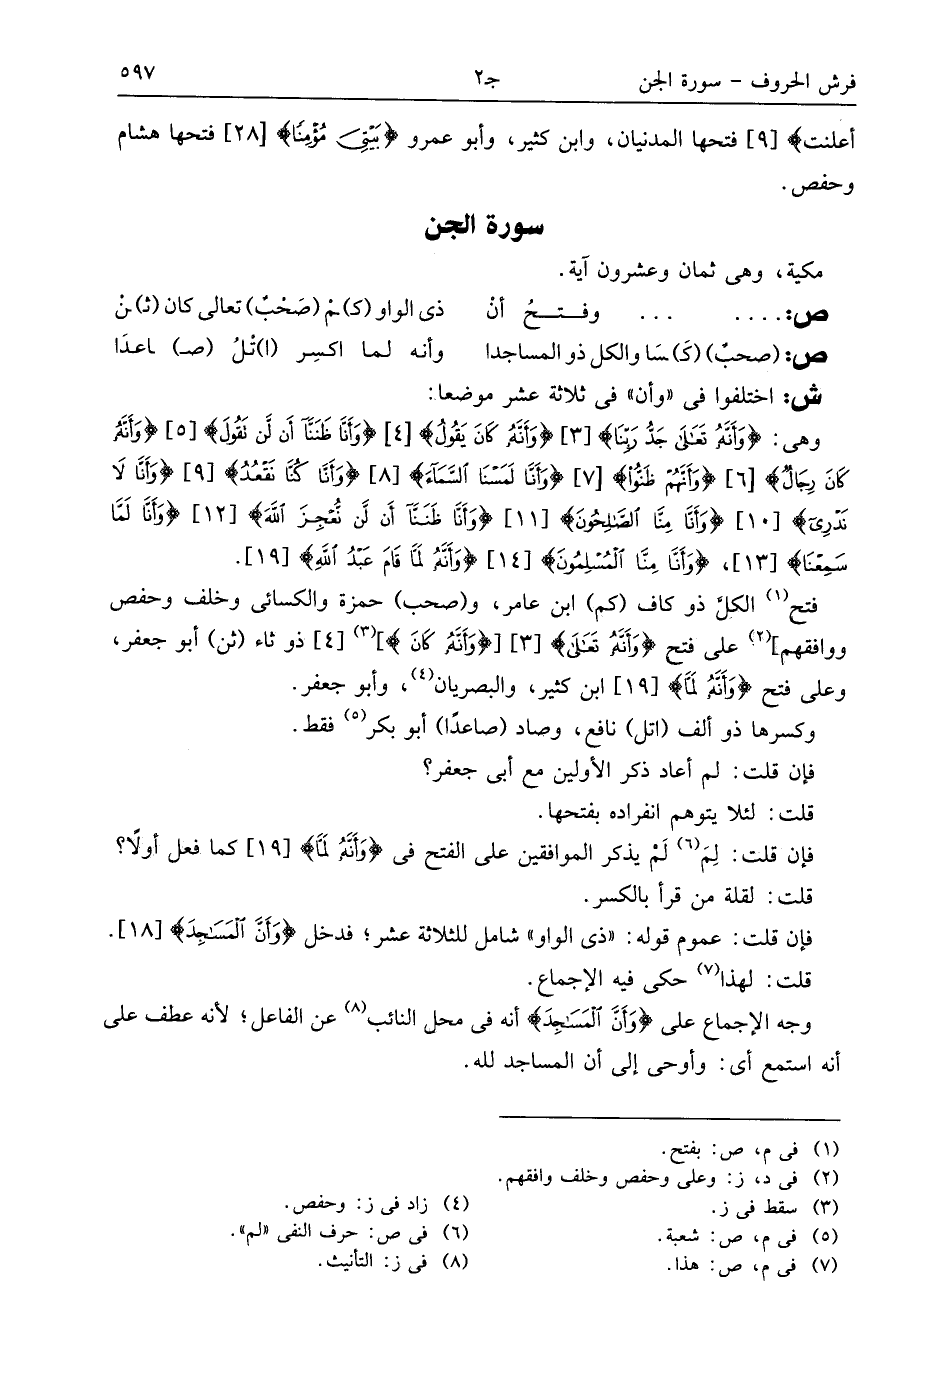 فرش الحروف – سورة الجن جـ٢ ٥٩٧
أعلنت﴾ [٩] فتحها المدنيان، وابن كثير، وأبو عمرو ﴿بَيْتِىَ مُؤْمِنًا﴾ [٢٨] فتحها هشام
وحفص.
سورة الجن
مكية، وهى ثمان وعشرون آية.
ص: .... ... وفـتـــحُ أنْ ذى الواو (كـ)ـمْ (صَحْبٌ) تعالى كان (ثـ)ـنْ
ص: (صحبٌ) (كَـ)سَا والكل ذو المساجدا وأنه لما اكسِر (ا)تْلُ (صـ) ـاعدَا
ش: اختلفوا فى «وأن» فى ثلاثة عشر موضعا:
وهى: ﴿وَأَنَّهُۥ تَعَٰلَىٰ جَدُّ رَبِّنَا﴾ [٣] ﴿وَأَنَّهُۥ كَانَ يَقُولُ﴾ [٤] ﴿وَأَنَّا ظَنَنَّآ أَن لَّن نَقُولَ﴾ [٥] ﴿وَأَنَّهُۥ
كَانَ رِجَالٌ﴾ [٦] ﴿وَأَنَّهُمْ ظَنُّوا۟﴾ [٧] ﴿وَأَنَّا لَمَسْنَا ٱلسَّمَآءَ﴾ [٨] ﴿وَأَنَّا كُنَّا نَقْعُدُ﴾ [٩] ﴿وَأَنَّا لَا
نَدْرِىٓ﴾ [١٠] ﴿وَأَنَّا مِنَّا ٱلصَّٰلِحُونَ﴾ [١١] ﴿وَأَنَّا ظَنَنَّآ أَن لَّن نُّعْجِزَ ٱللَّهَ﴾ [١٢] ﴿وَأَنَّا لَمَّا
سَمِعْنَا﴾ [١٣]، ﴿وَأَنَّا مِنَّا ٱلْمُسْلِمُونَ﴾ [١٤] ﴿وَأَنَّهُۥ لَمَّا قَامَ عَبْدُ ٱللَّهِ﴾ [١٩].
فتح(١) الكلَّ ذو كاف (كم) ابن عامر، و(صحب) حمزة والكسائى وخلف وحفص
ووافقهم](٢) على فتح ﴿وَأَنَّهُۥ تَعَٰلَىٰ﴾ [٣] [﴿وَأَنَّهُۥ كَانَ ﴾](٣) [٤] ذو ثاء (ثن) أبو جعفر،
وعلى فتح ﴿وَأَنَّهُۥ لَمَّا﴾ [١٩] ابن كثير، والبصريان(٤)، وأبو جعفر.
وكسرها ذو ألف (اتل) نافع، وصاد (صاعدًا) أبو بكر(٥) فقط.
فإن قلت: لم أعاد ذكر الأولين مع أبى جعفر؟
قلت: لئلا يتوهم انفراده بفتحها.
فإن قلت: لِمَ(٦) لَمْ يذكر الموافقين على الفتح فى ﴿وَأَنَّهُۥ لَمَّا﴾ [١٩] كما فعل أولًا؟
قلت: لقلة من قرأ بالكسر.
فإن قلت: عموم قوله: «ذى الواو» شامل للثلاثة عشر؛ فدخل ﴿وَأَنَّ ٱلْمَسَٰجِدَ﴾ [١٨].
قلت: لهذا(٧) حكى فيه الإجماع.
وجه الإجماع على ﴿وَأَنَّ ٱلْمَسَٰجِدَ﴾ أنه فى محل النائب(٨) عن الفاعل؛ لأنه عطف على
أنه استمع أى: وأوحى إلى أن المساجد لله.
(١) فى م، ص: بفتح.
(٢) فى د، ز: وعلى وحفص وخلف وافقهم.
(٣) سقط فى ز. (٤) زاد فى ز: وحفص.
(٥) فى م، ص: شعبة. (٦) فى ص: حرف النفى «لم».
(٧) فى م، ص: هذا. (٨) فى ز: التأنيث.